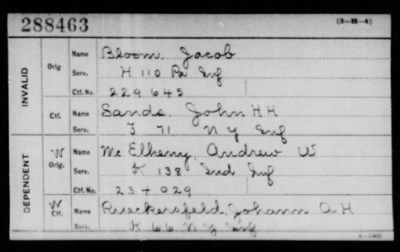 288463
(3-H-4)
INVALID
Orig
Name Bloom, Jacob
Serv. H 110 Pa Inf
Ctf. No. 229645
Ctf.
Name Sands, John H H
Serv. I 71 N Y Inf
DEPENDENT
W Orig.
Name Mc Elheny, Andrew W
Serv. K 138 Ind Inf
Ctf. No. 234029
W Ctf.
Name Rueckersfeld, Johann A H
Serv. K 66 N Y Inf